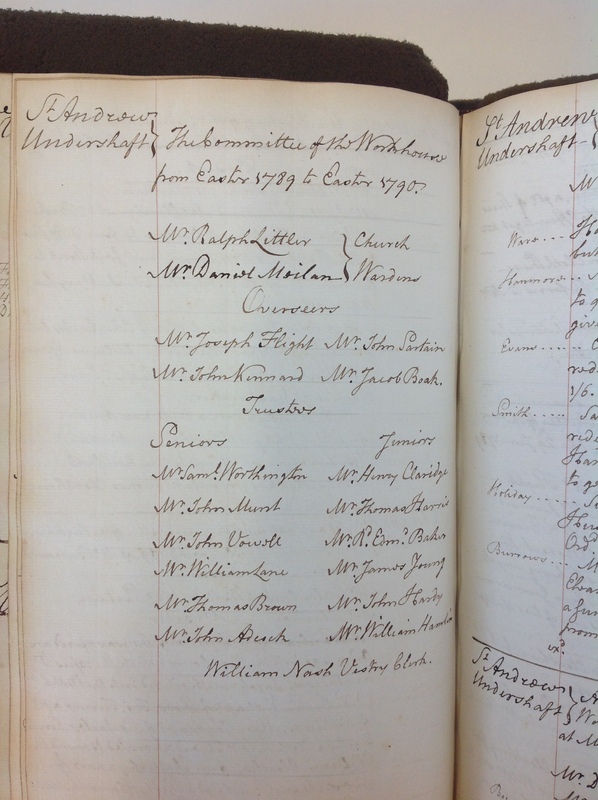 St. Andrew
Undershaft
The Committee of the Workhouse
from Easter 1789 to Easter 1790.
Mr. Ralph Littler
Church
Mr. Daniel Meilan
Wardens
Overseers
Mr. Joseph Flight Mr. John Partain
Mr. John Kennard Mr. Jacob Boak.
Trustees
Seniors Juniors
Mr. Saml. Worthington Mr. Henry Claridge
Mr. John Munt Mr. Thomas Harris
Mr. John Vowell Mr. Rd. Edmd. Baker
Mr. William Lane Mr. James Young
Mr. Thomas Brown Mr. John Hardy
Mr. John Mr. William
William Nash Vestry Clerk.
St. Andrew
Undershaft
Ware....
but
Hanmore..
to g
give
Evans.....
red
1/6.
Smith.....
red
to g
Holiday.....
Ord
Burrows...
from
St. Andrew
Undershaft
at M
Mr. D